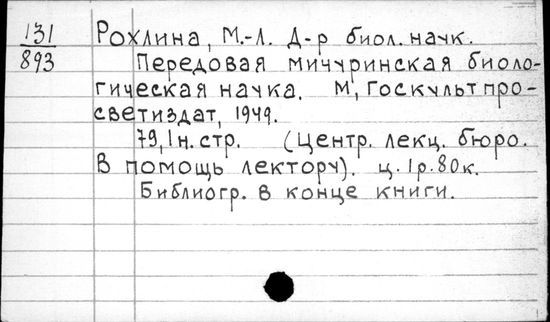 131
893
Рохлина, М.-Л. Д-р биол. наук.
Передовая мичуринская биоло-
гическая наука. М, Госкультпро-
светиздат, 1949.
79, 1 н. стр. (Центр. лекц. бюро.
В помощь лектору). ц. 1р. 80к.
Библиогр. в конце книги.